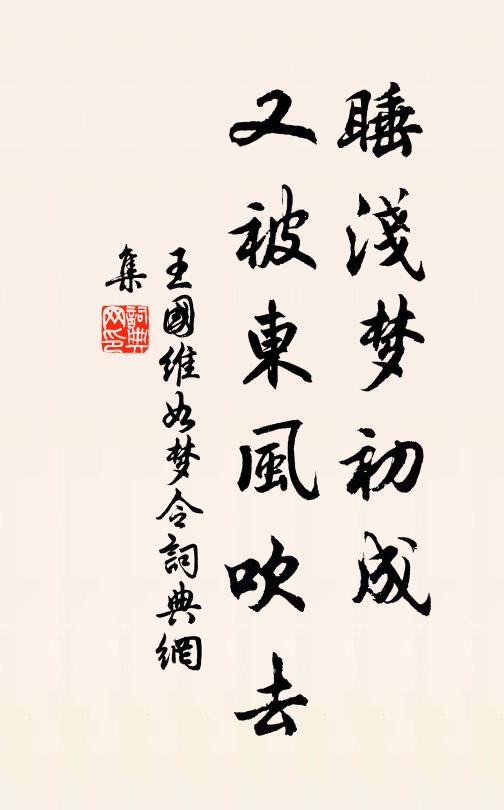 睡淺梦初成
又被東風吹去
王國維如梦令詞典網
集
詞典
网印